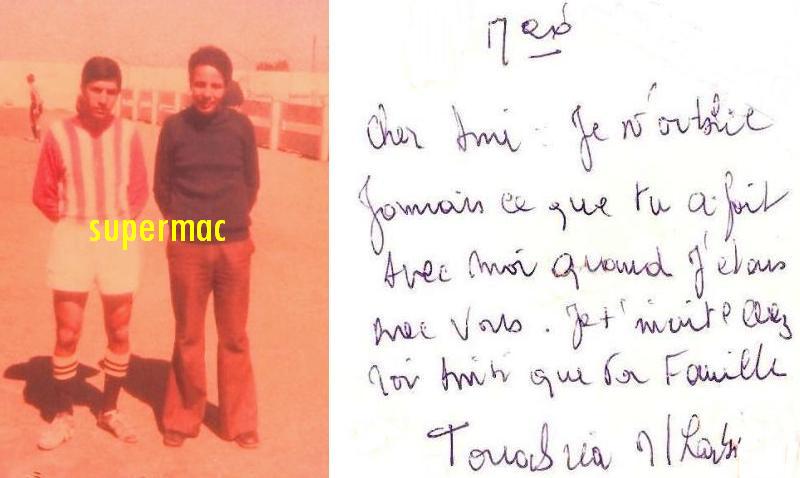 supermac
Cher Ami : Je n'oublie
Jamais ce que tu a fait
Avec Moi quand J'étais
avec Vous. Je t'invite chez
Moi Ainsi que Ta Famille